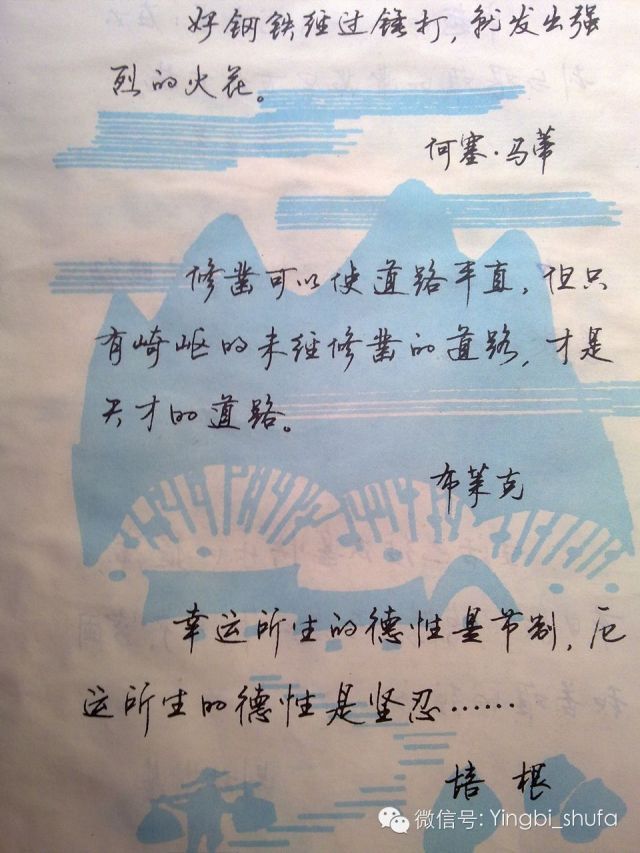 好钢铁经过锤打，就发出强
烈的火花。
何塞·马蒂
修凿可以使道路平直，但只
有崎岖的未经修凿的道路，才是
天才的道路。
布莱克
幸运所生的德性是节制，厄
运所生的德性是坚忍……
培根
微信号: Yingbi_shufa